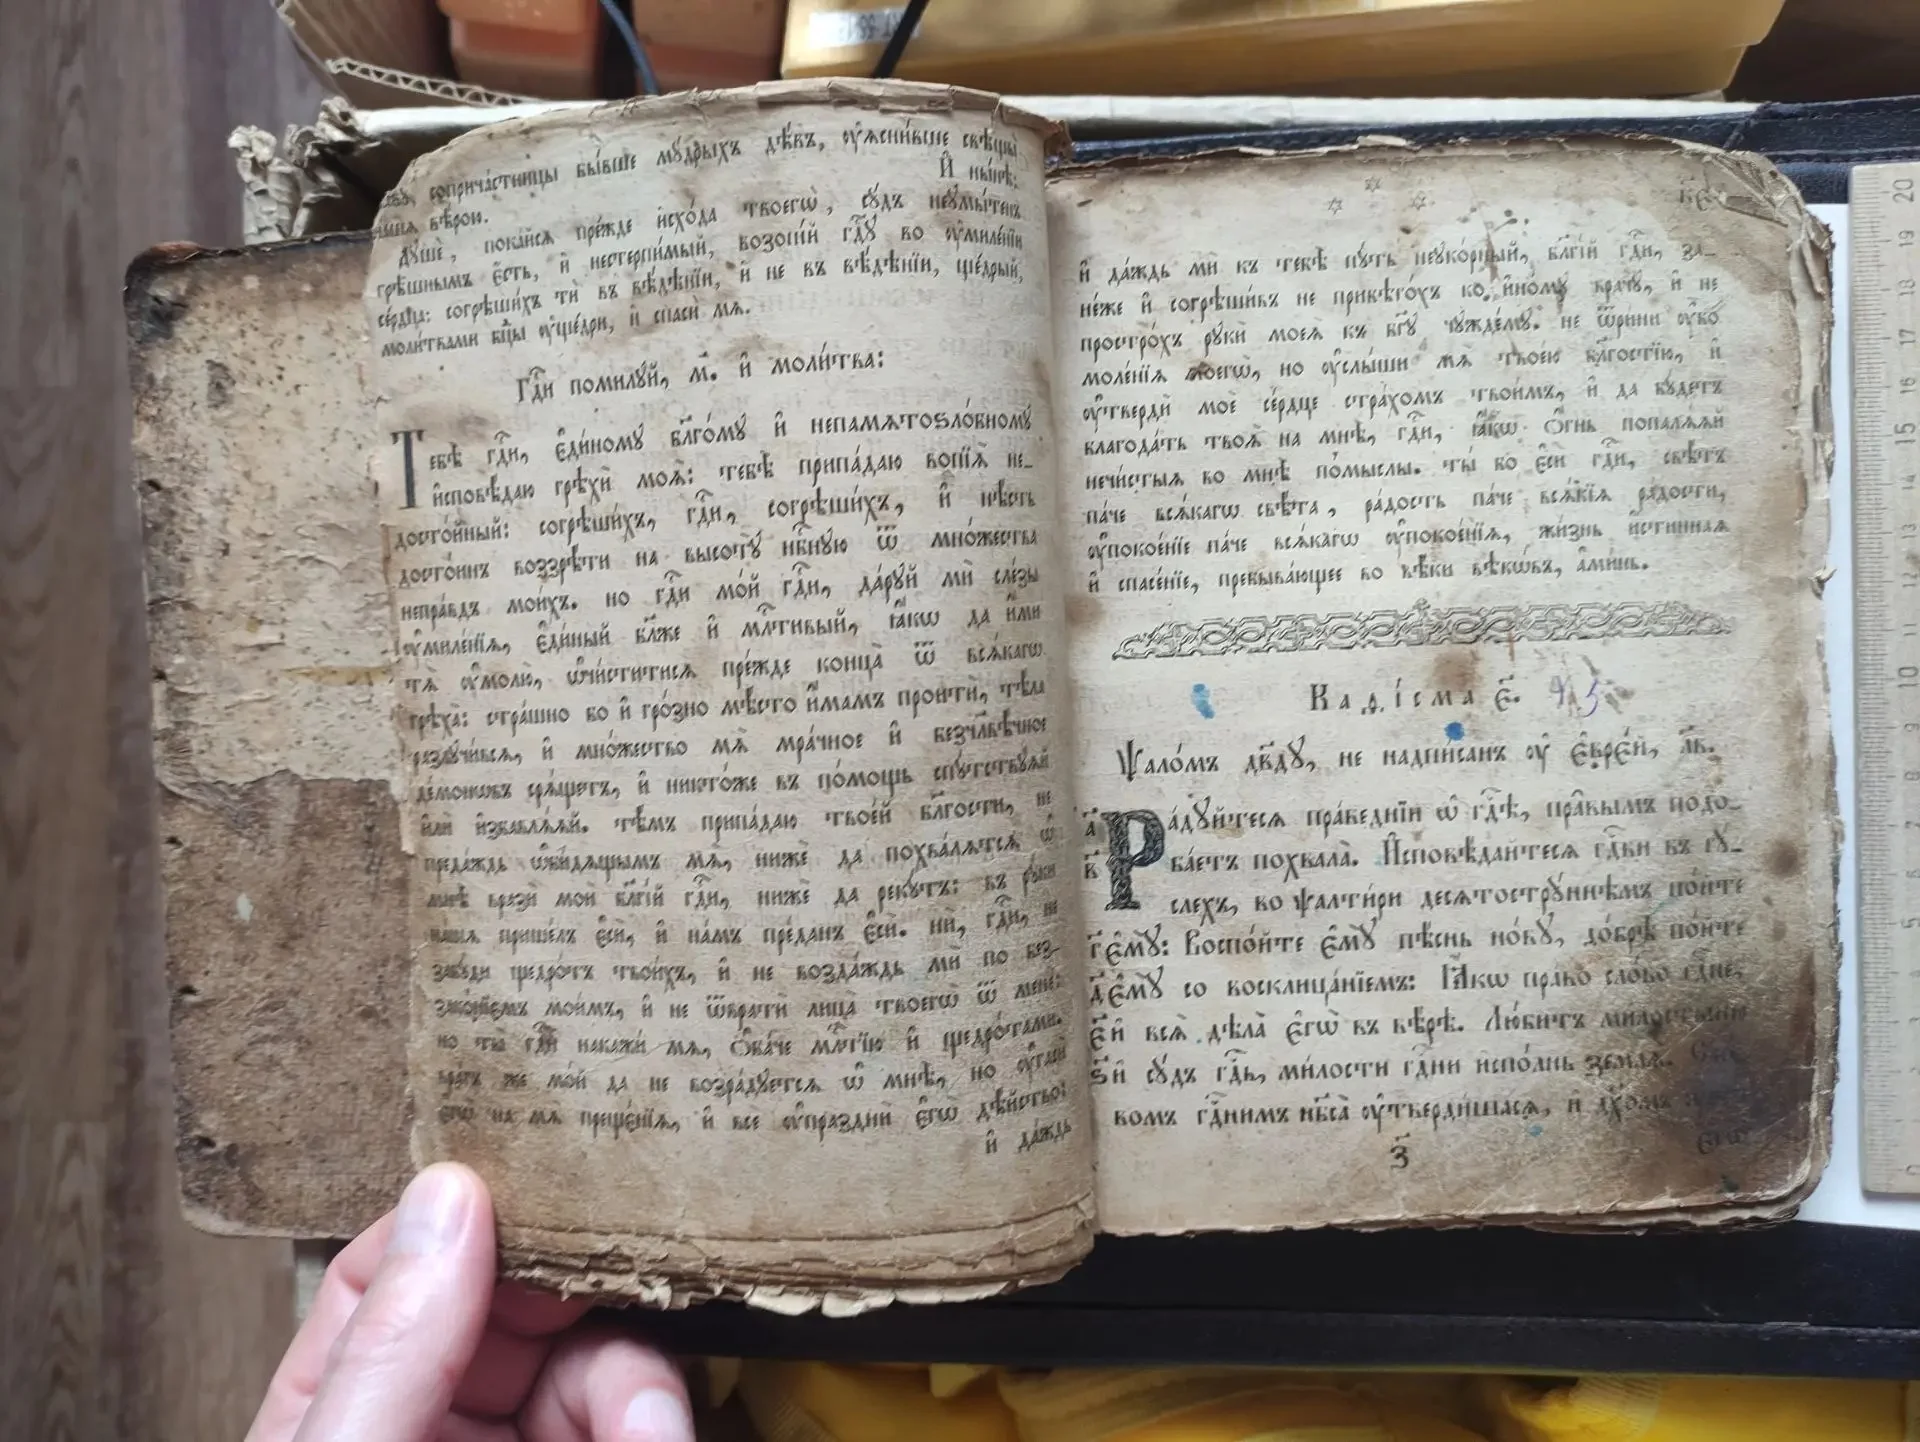 соприча́стницы бы́вше мꙋ́дрыхъ дѣ́въ, ᲂу҆ясни́вше свѣщы̀
вѣ́рою. И҆ ны́нѣ:
Дꙋшѐ, пока́йся пре́жде и҆схо́да твоегѡ̀, сꙋ́дъ неꙋмы́тенъ
грѣ̑шнымъ є҆́сть, и҆ нестерпи́мый, возопі́й гдⷭ҇ꙋ во ᲂу҆миле́нїи
се́рдца: согрѣши́хъ тѝ въ вѣ́дѣнїи, и҆ не въ вѣ́дѣнїи, ще́дрый,
моли́твами бцⷣы ᲂу҆ще́дри, и҆ спаси́ мѧ.
Гдⷭ҇и поми́лꙋй, м҃. и҆ моли́тва:
Тебѣ̀ гдⷭ҇и, є҆ди́номꙋ бл҃го́мꙋ и҆ непамѧтоѕло́бномꙋ
и҆сповѣ́даю грѣхѝ моѧ̑: тебѣ̀ припа́даю вопїѧ̀ не_
досто́йный: согрѣши́хъ, гдⷭ҇и, согрѣши́хъ, и҆ нѣ́сть
досто́инъ воззрѣ́ти на высотꙋ̀ нбⷭ҇нꙋю ѿ мно́жества
непра́вдъ мои́хъ. но гдⷭ҇и мо́й гдⷭ҇и, да́рꙋй мѝ сле́зы
ᲂу҆миле́нїѧ, є҆ди́ный бл҃же и҆ млⷭ҇тивый, ꙗ҆́кѡ да и҆́ми
тѧ̀ ᲂу҆молю̀, ѡ҆чи́ститисѧ пре́жде конца̀ ѿ всѧ́кагѡ
грѣха̀: стра́шно бо и҆ гро́зно мѣ́сто и҆́мамъ проитѝ, тѣ́ла
разлꙋчи́всѧ, и҆ мно́жество мѧ̀ мра́чное и҆ безчл҃вѣ́чное
де́мѡнѡвъ срѧ́щетъ, и҆ никто́же въ по́мощь спꙋ́тствꙋѧй
и҆лѝ и҆збавлѧ́ѧй. тѣ́мъ припа́даю твое́й бл҃гости, не
преда́ждь ѡ҆би́дѧщымъ мѧ̀, нижѐ да похва́лѧтсѧ ѡ҆
мнѣ̀ вразѝ моѝ бл҃гі́й гдⷭ҇и, нижѐ да рекꙋ́тъ: въ рꙋ́ки
на́шѧ прише́лъ є҆сѝ, и҆ на́мъ пре́данъ є҆сѝ. нѝ, гдⷭ҇и, не
забꙋ́ди щедро́тъ твои́хъ, и҆ не возда́ждь мѝ по без_
зако́нїемъ мои̑мъ, и҆ не ѿвратѝ лица̀ твоегѡ̀ ѿ менѐ:
но ты̀ гдⷭ҇и накажѝ мѧ, ѻ҆ба́че млⷭ҇тїю и҆ щедро́тами.
вра́гъ же мо́й да не возра́дꙋетсѧ ѡ҆ мнѣ̀, но ᲂу҆гасѝ
є҆гѡ̀ на мѧ̀ преще́нїѧ, и҆ все ᲂу҆праздни́ є҆гѡ̀ дѣ́йство:
и҆ да́ждь
и҆ да́ждь мѝ къ тебѣ̀ пꙋ́ть неꙋко́рный, бл҃гі́й гдⷭ҇и, за_
не́же и҆ согрѣши́въ не прибѣго́хъ ко и҆но́мꙋ врачꙋ̀, и҆ не
простро́хъ рꙋкѝ моеѧ̀ къ бг҃ꙋ чꙋжде́мꙋ. не ѿри́ни ᲂу҆̀бо
моле́нїѧ моегѡ̀, но ᲂу҆слы́ши мѧ̀ твое́ю бл҃гостїю, и҆
ᲂу҆твердѝ моѐ се́рдце стра́хомъ твои́мъ, и҆ да бꙋ́детъ
благода́ть твоѧ̀ на мнѣ̀, гдⷭ҇и, ꙗ҆́кѡ ѻ҆́гнь попалѧ́ѧй
нечи́стыѧ во мнѣ̀ по́мыслы. ты́ бо є҆сѝ гдⷭ҇и, свѣ́тъ
па́че всѧ́кагѡ свѣ́та, ра́дость па́че всѧ́кїѧ ра́дости,
ᲂу҆покое́нїе па́че всѧ́кагѡ ᲂу҆покое́нїѧ, жи́знь и҆́стиннаѧ
и҆ спасе́нїе, пребыва́ющее во вѣ́ки вѣкѡ́въ, а҆ми́нь.
Каѳі́сма є҃.
Ѱало́мъ дв҃дꙋ, не надпи́санъ ᲂу҆ є҆вре́й, л҃в.
а҃ Ра́дꙋйтесѧ пра́веднїи ѡ҆ гдⷭ҇ѣ, пра̑вымъ подо_
в҃ ба́етъ похвала̀. И҆сповѣ́дайтесѧ гдⷭ҇ви въ гꙋ_
слехъ, во ѱалти́ри десѧтострꙋ́ннѣмъ по́йте
г҃ є҆мꙋ̀: Воспо́йте є҆мꙋ̀ пѣ́снь но́вꙋ, до́брѣ по́йте
д҃ є҆мꙋ̀ со восклица́нїемъ: Ꙗ҆́кѡ пра́во сло́во гдⷭ҇не,
є҃ и҆ всѧ̑ дѣла̀ є҆гѡ̀ въ вѣ́рѣ. Лю́битъ ми́лостыню
ѕ҃ и҆ сꙋ́дъ гдⷭ҇ь, ми́лости гдⷭ҇ни и҆спо́лнь землѧ̀.
вомъ гдⷭ҇нимъ нб҃са̀ ᲂу҆тверди́шасѧ, и҆ дꙋ́хомъ
з҃ є҆гѡ̀